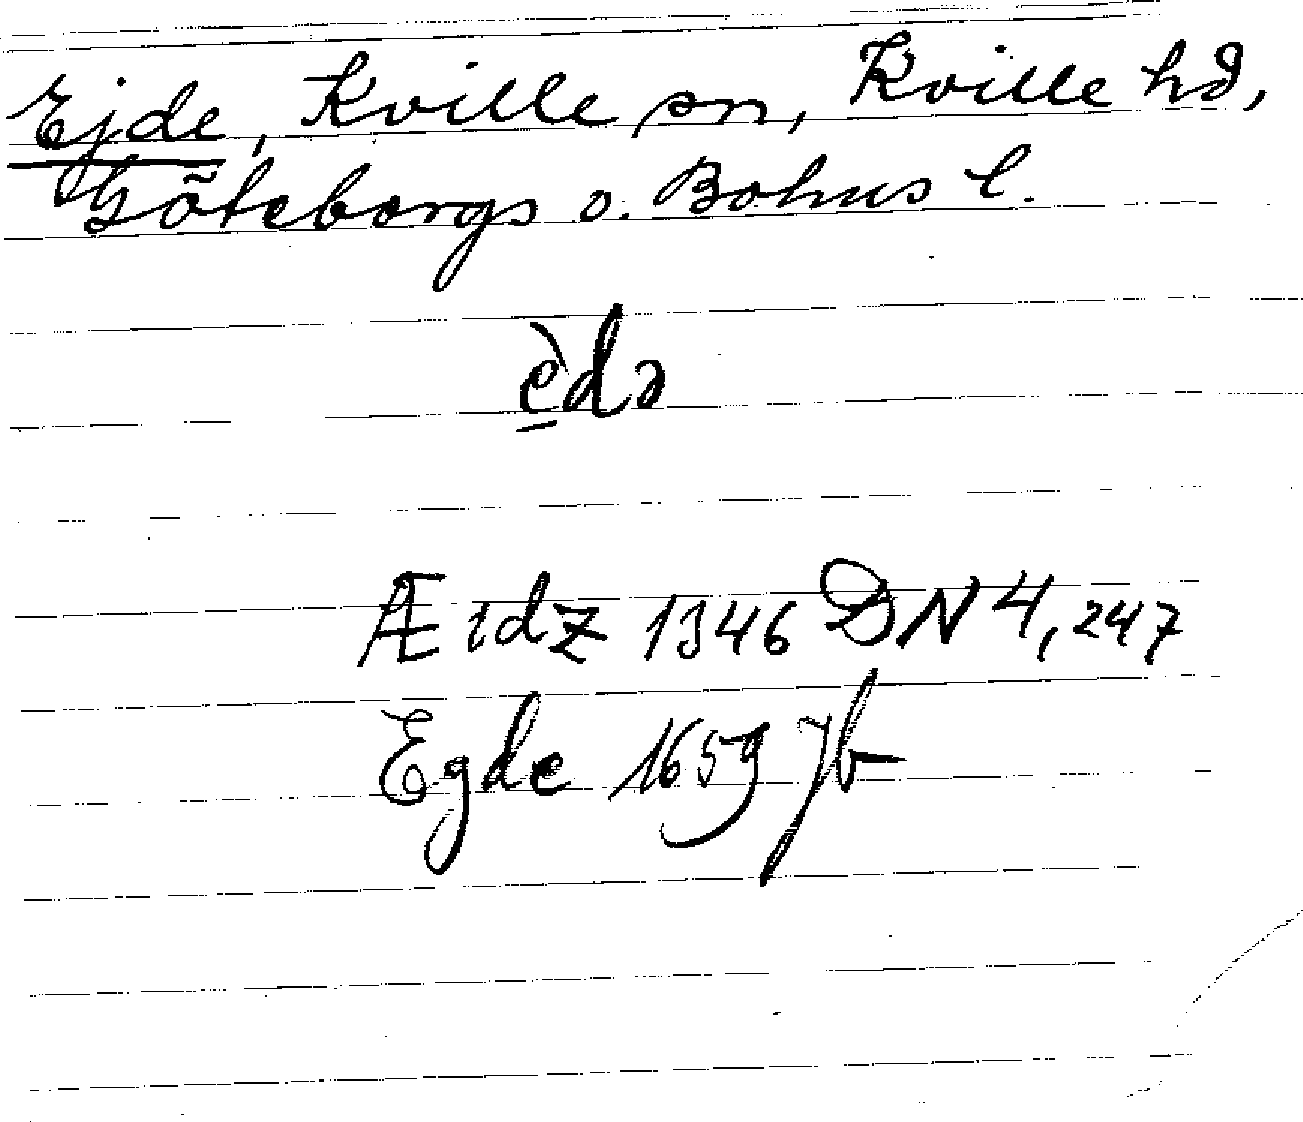 Ejde, Kville sn, Kville hd,
Göteborgs o. Bohus l.
èdə
Æidz 1346 DN 4, 247
Egde 1659 Jb